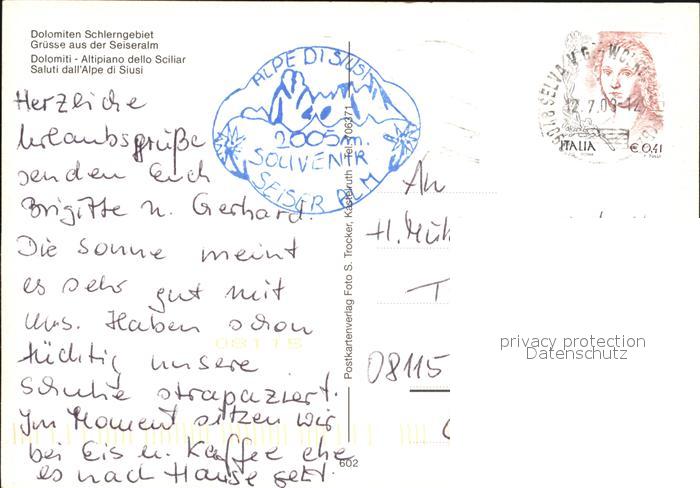 Dolomiten Schlerngebiet
Grüsse aus der Seiseralm
Dolomiti - Altipiano dello Sciliar
Saluti dall'Alpe di Siusi
Herzliche
Urlaubsgrüße
senden Euch
Brigitte u. Gerhard.
Die Sonne meint
es sehr gut mit
uns. Haben schon
tüchtig unsere
Schuhe strapaziert.
Im Moment sitzen wir
bei Eis u. Kaffee ehe
es nach Hause geht.
08115
ALPE DI SIUSI
2005m.
SOUVENIR
SEISER ALM
Postkartenverlag Foto S. Trocker, Kastelruth Tel. 706371
602
39048 SELVA V.G.
12.7.03-12
ITALIA
€ 0,41
An
H.
T
08115
privacy protection
Datenschutz